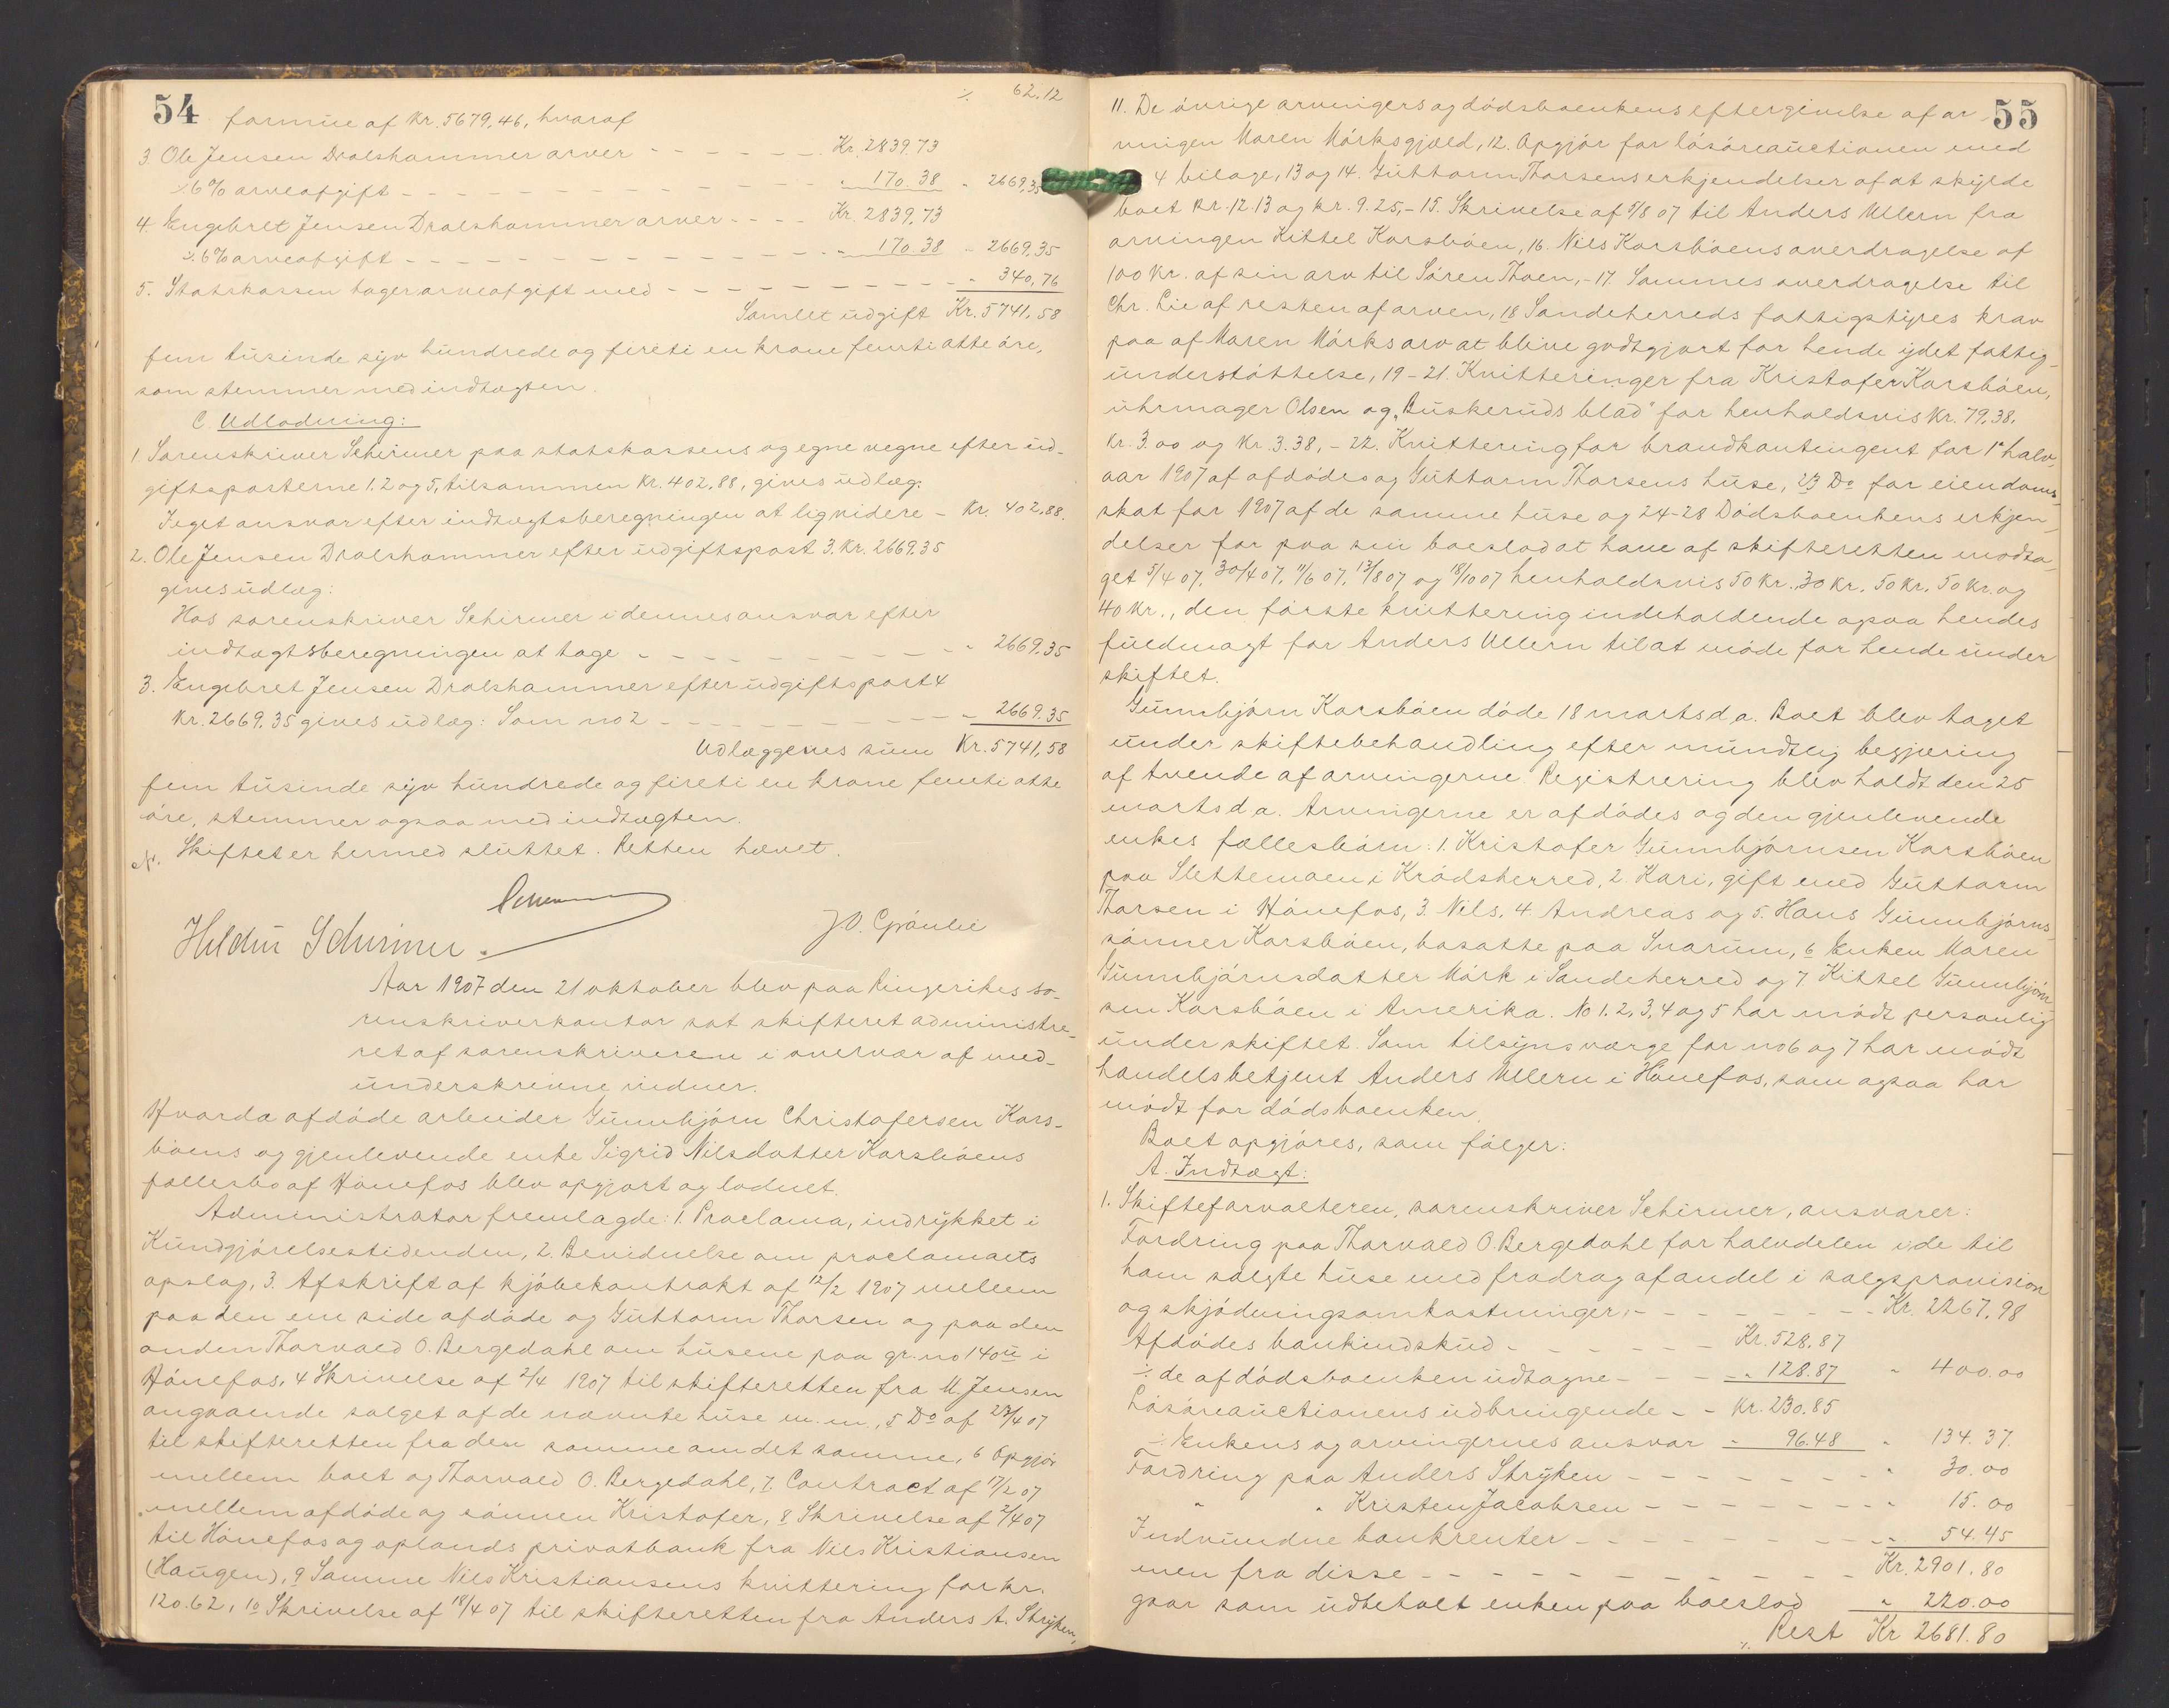 54
⁒ 62.12
formue af Kr. 5679,46, hvoraf
3. Ole Jensen Dralshammer arver - - - - - Kr. 2839.73
⁒ 6% arveafgift - - - - - - - - - - " 170.38 " 2669,35
4. Engebret Jensen Dralshammer arver - - - - Kr. 2839,73
⁒ 6% arveafgift - - - - - - - - - - " 170.38 - 2669.35
5. Statskassen tager arveafgift med - - - - - - - - - " 340,76
Samlet udgift Kr. 5741,58
fem tusinde syv hundrede og firети en krone femti otte øre,
som stemmer med indtægten.
C. Udlodning:
1 Sorenskriver Schirmer paa statskassens og egne vegne efter ud-
giftsposterne 1. 2 og 5, tilsammen Kr. 402.88, gives udlæg:
I eget ansvar efter indtægtsberegningen at liqvidere - Kr. 402,88.
2. Ole Jensen Dralshammer efter udgiftspost 3. Kr. 2669.35
gives udlæg:
Hos sorenskriver Schirmer i dennes ansvar efter
indtægtsberegningen at tage - - - - - - - - - " 2669.35
3. Engebret Jensen Dralshammer efter udgiftspost 4
Kr. 2669.35 gives udlæg: Som no 2 - - - - - - - - - " 2669.35
Udlæggenes sum Kr. 5741,58
fem tusinde syv hundrede og fireti en krone femti otte
øre, stemmer ogsaa med indtægten.
Skiftet er hermed sluttet. Retten hævet.
Schirmer
Hildur Schirmer.
J.O. Gråulie
Aar 1907 den 21 oktober blev paa Ringerikes so-
renskriverkontor sat skifteret administre-
ret af sorenskriveren i overvær af med-
underskrivne vidner.
Hvorda afdøde arbeider Gunnbjørn Christofersen Kors-
bøens og gjenlevende enke Sigrid Nilsdatter Korsbøens
fællesbo af Hønefos blev opgjort og lodnet.
Administrator fremlagde: 1. Proclama, indrykket i
Kundgjørelsestidenden, 2. Bevidnelse om proclamaets
opslag, 3. Afskrift af kjøbekontrakt af 12/2 1907 mellem
paa den ene side afdøde og Guttorm Thorsen og paa den
anden Thorvald O. Bergedahl om husene paa gr. no 140ü i
Hønefos, 4 Skrivelse af 2/4 1907 til skifteretten fra M. Jensen
angaaende salget af de nævnte huse m. m., 5 Do af 23/4 07
til skifteretten fra den samme om det samme, 6 Opgjør
mellem boet og Thorvald O. Bergedahl, 7. Contract af 17/2 07
mellem afdøde og sønnen Kristofer, 8 Skrivelse af 2/4 07
til Hønefos og oplands privatbank fra Nils Kristiansen
(Haugen), 9 Samme Nils Kristiansens kvittering for kr.
120.62, 10 Skrivelse af 18/4 07 til skifteretten fra Anders A. Stryken,
55
11. De øvrige arvingers og dødsboenkens eftergivelse af ar-
vingen Maren Mørks gjæld, 12. Opgjør for løsøreauctionen med
4 bilage, 13 og 14. Guttorm Thorsens erkjendelser af at skylde
boet kr. 12.13 og kr. 9.25, - 15. Skrivelse af 5/8 07 til Anders Ullern fra
arvingen Kittel Korsbøen, 16. Nils Korsbøens overdragelse af
100 kr. af sin arv til Søren Thoen, - 17. Sammes overdragelse til
Chr. Lie af resten af arven, 18 Sandeherreds fattigstyres krav
paa af Maren Mørks arv at blive godtgjort for hende ydet fattig-
understøttelse, 19 - 21. Kvitteringer fra Kristofer Korsbøen,
uhrmager Olsen og „Buskeruds blad" for henholdsvis kr. 79.38.
kr. 3.00 og kr. 3.38, - 22. Kvittering for brandkontingent for 1ste halv-
aar 1907 af afdødes og Guttorm Thorsens huse, 23 Do for eiendoms-
skat for 1907 af de samme huse og 24-28 Dødsboenkens erkjen-
delser for paa sin boeslod at have af skifteretten modta-
get 5/4 07, 30/4 07, 11/6 07, 13/8 07 og 18/10 07 henholdsvis 50 kr. 30 kr. 50 kr. 50 kr. og
40 kr., den første kvittering indeholdende ogsaa hendes
fuldmagt for Anders Ullern til at møde for hende under
skiftet.
Gunnbjørn Korsbøen døde 18 marts d. a. Boet blev taget
under skiftebehandling efter mundtlig begjæring
af tvende af arvingerne. Registrering blev holdt den 25
marts d. a. Arvingerne er afdødes og den gjenlevende
enkes fællesbørn: 1. Kristofer Gunnbjørnsen Korsbøen
paa Slettemoen i Krødsherred, 2. Kari, gift med Guttorm
Thorsen i Hønefos, 3. Nils, 4. Andreas og 5. Hans Gunnbjørns-
sønner Korsbøen, bosatte paa Snarum, 6 Enken Maren
Gunnbjørnsdatter Mørk i Sandeherred og 7 Kittel Gunnbjørn-
sen Korsbøen i Amerika. No 1. 2, 3, 4 og 5 har mødt personlig
under skiftet. Som tilsynsværge for no 6 og 7 har mødt
handelsbetjent Anders Ullern i Hønefos, som ogsaa har
mødt for dødsboenken.
Boet opgjøres, som følger:
A. Indtægt:
1. Skifteforvalteren, sorenskriver Schirmer, ansvarer:
Fordring paa Thorvald O. Bergedahl for halvdelen i de til
ham solgte huse med fradrag af andel i salgsprovision
og skjødningsomkostninger, - - - - - - - Kr. 2267.98
Afdødes bankindskud - - - - - - Kr. 528.87
⁒ de af dødsboenken udtagne - - - - " 128.87 " 400.00
Løsøreauctionens udbringende - - Kr. 230.85
⁒ Enkens og arvingernes ansvar - 96.48 " 134.37.
Fordring paa Anders Stryken - - - - - - - " 30.00
" " Kristen Jacobsen - - - - - - - " 15.00
Indvundne bankrenter - - - - - - - - " 54.45
Kr. 2901.80
men fra disse - - - - - - - - - -
gaar som udbetalt enken paa boeslod " 220.00
⁒ Rest Kr 2681.80